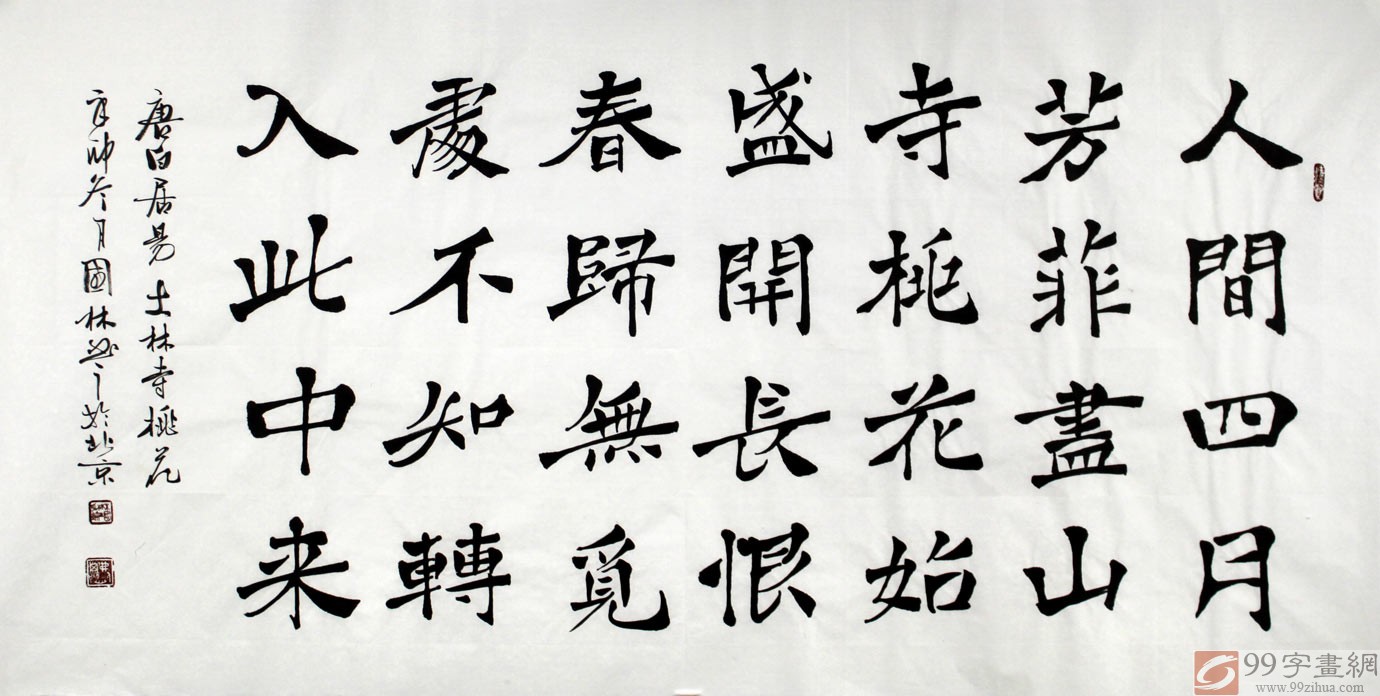 人間四月
芳菲盡山
寺桃花始
盛開長恨
春歸無覓
處不知轉
入此中来
唐白居易 林寺桃花
冬月國林 於北京
99字畫網
www.99zihua.com